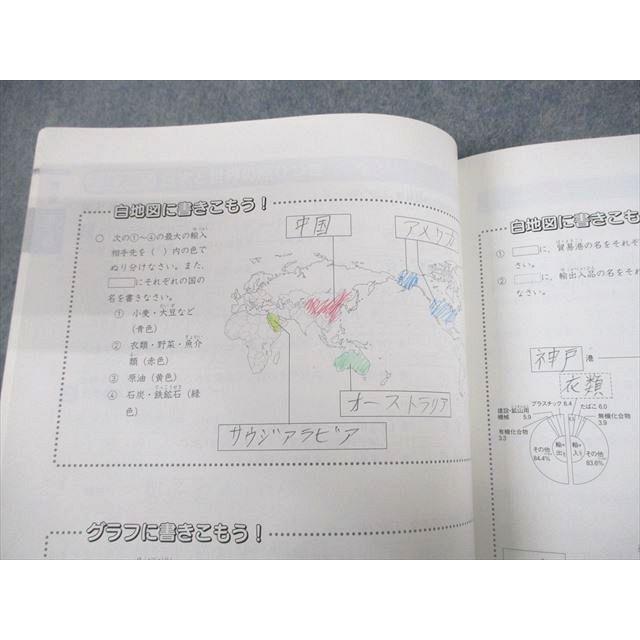 白地図に書きこもう!
中国
アメリカ
○ 次の①〜④の最大の輸入
相手先を( )内の色で
ぬり分けなさい。また、
にそれぞれの国の
名を書きなさい。
① 小麦・大豆など
(青色)
② 衣類・野菜・魚介
類(赤色)
③ 原油(黄色)
④ 石炭・鉄鉱石(緑
色)
オーストラリア
サウジアラビア
グラフに書きこもう!
白地図に書きこも
① に、貿易港の名をそれぞ
さい。
② に、輸出入品の名をそれ
なさい。
神戸 港
衣類
プラスチック 6.4
たばこ 6.0
建設・鉱山用
機械 5.9
無機化合物
3.9
有機化合物
3.3
その他
84.4%
輸出
輸入
その他
83.6%